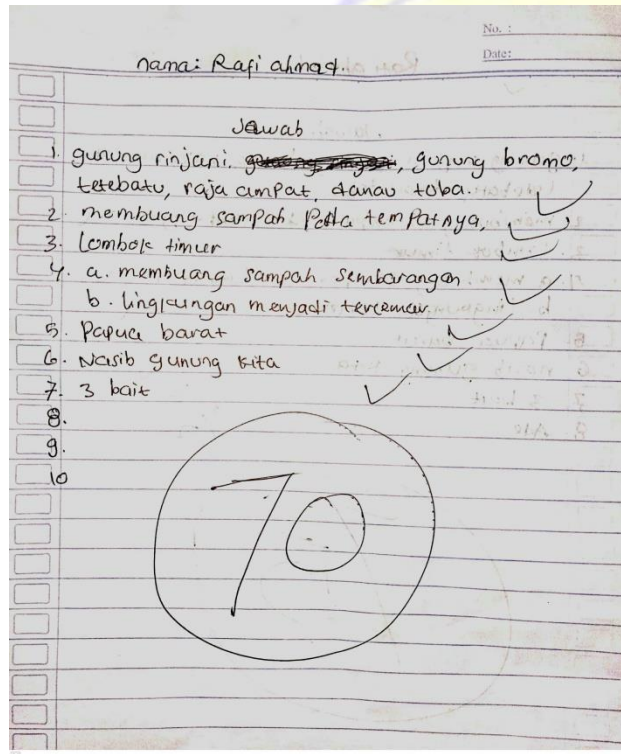 No. :
Date:
nama: Rafi ahmad.
Jawab
1. gunung rinjani, gunung bromo,
tetebatu, raja ampat, danau toba.
2. membuang sampah Pada temPatnya,
3. Lombok timur
4. a. membuang sampah sembarangan
b. lingkungan menjadi tercemar
5. Papua barat
6. Nasib gunung kita
7. 3 bait
8.
9.
10
70